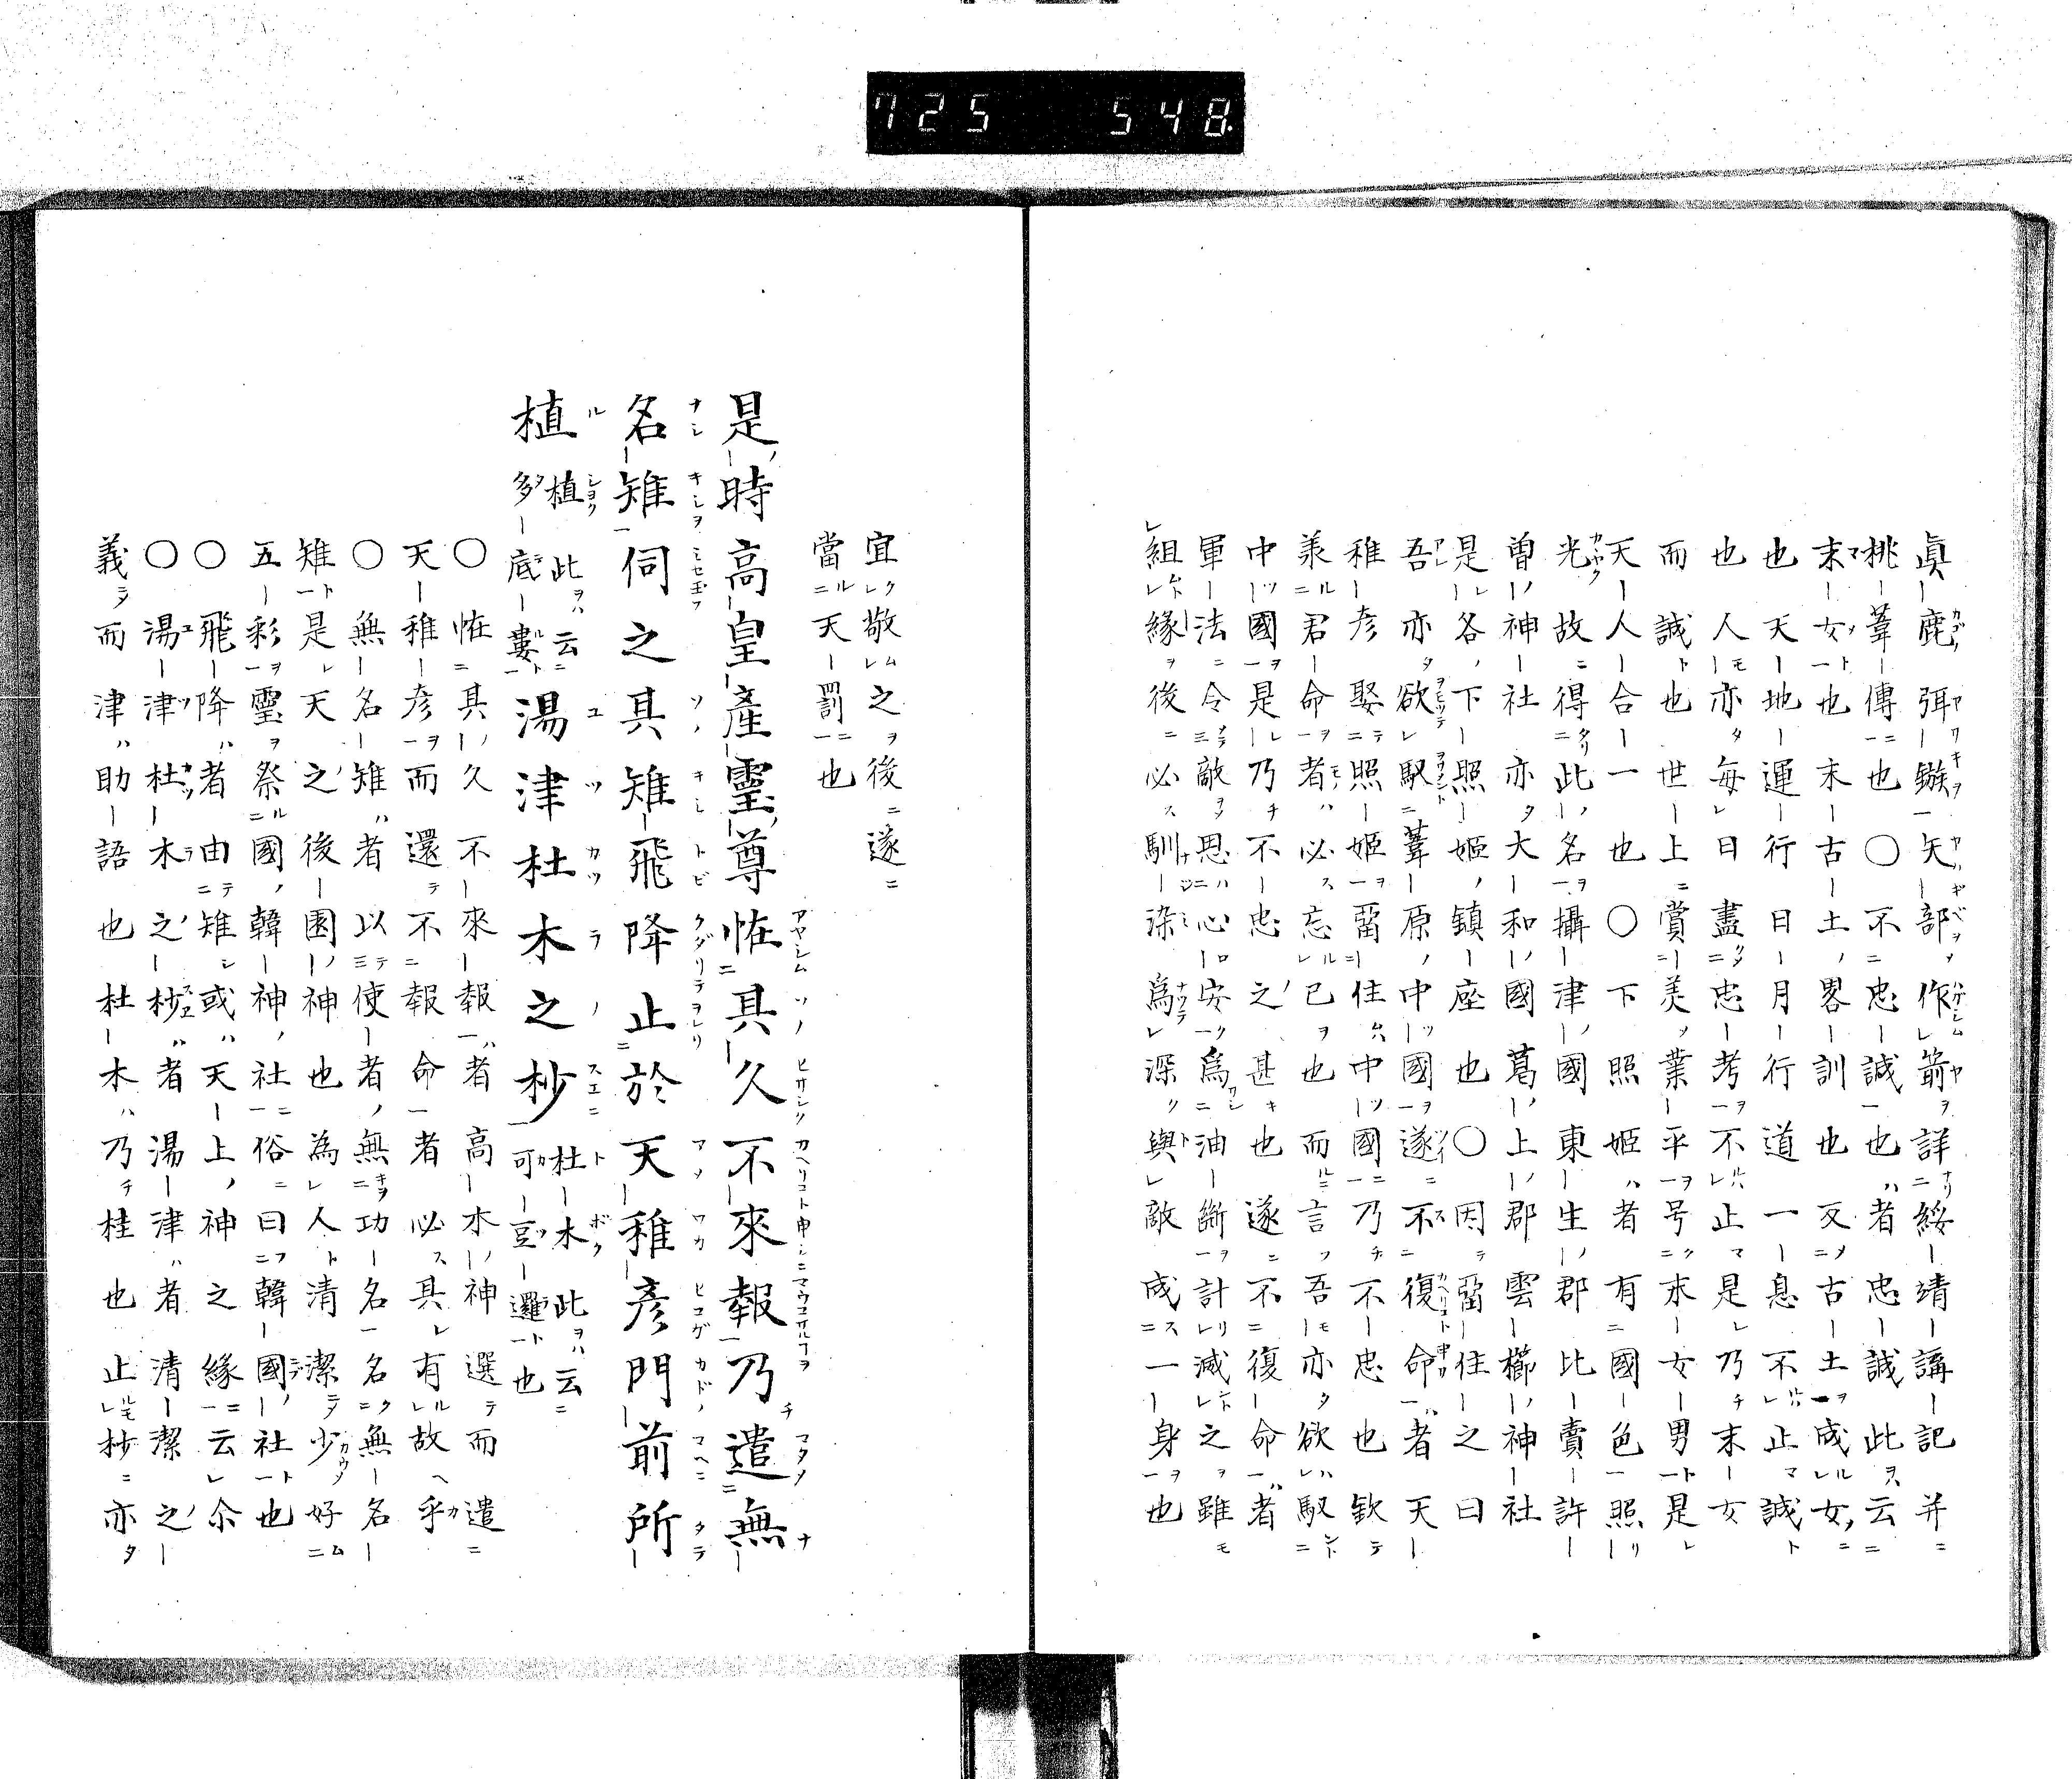 725 548
眞鹿弭鏃矢部作箭詳綏靖講記并
桃葦傳也〇不忠誠也者忠誠此云
末女也末古土畧訓也又古土成女
也天地運行日月行道一息不止誠
也人亦毎日盡忠考不止是乃末女
而誠也世上賞美業平号末女男是
天人合一也〇下照姬者有國色照
光故得此名攝津國東生郡比賣許
曽神社亦大和國葛上郡雲櫛神社
是各下照姬鎮座也〇因畱住之曰
吾亦欲馭葦原中國遂不復命者天
稚彦娶照姬畱住中國乃不忠也欽
羕君命者必忘己也而言吾亦欲馭
中國是乃不忠之甚也遂不復命者
軍法令敵思心安爲油斷計滅之雖
組緣後必馴染爲深與敵成一身也
宜敬之後遂
當天罰也
是時高皇產靈尊恠其久不來報乃遣無
名雉伺之其雉飛降止於天稚彦門前所
植植此云多底婁湯津杜木之杪杜木此云可豆邏也
〇恠其久不來報者高木神選而遣
天稚彦而還不報命者必其有故乎
〇無名雉者以使者無功名名無名
雉是天之後園神也為人清潔少好
五彩靈祭國韓神社俗曰韓國社也
〇飛降者由雉或天上神之緣云尒
〇湯津杜木之杪者湯津者清潔之
義而津助語也杜木乃桂也止杪亦